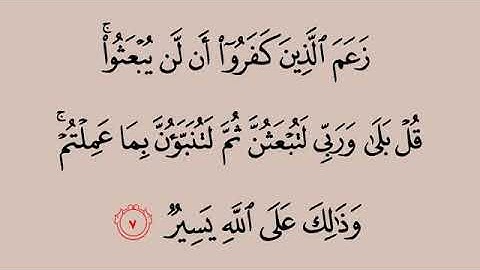 زَعَمَ ٱلَّذِينَ كَفَرُوٓا۟ أَن لَّن يُبْعَثُوا۟ ۚ
قُلْ بَلَىٰ وَرَبِّى لَتُبْعَثُنَّ ثُمَّ لَتُنَبَّؤُنَّ بِمَا عَمِلْتُمْ ۚ
وَذَٰلِكَ عَلَى ٱللَّهِ يَسِيرٌ ٧